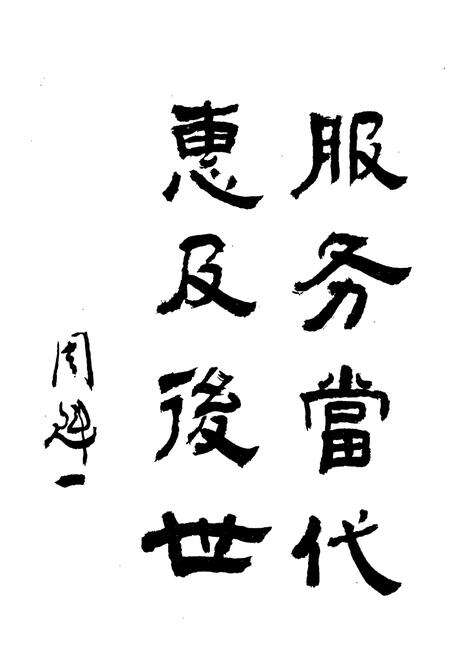 服务當代
惠及後世
周魁一